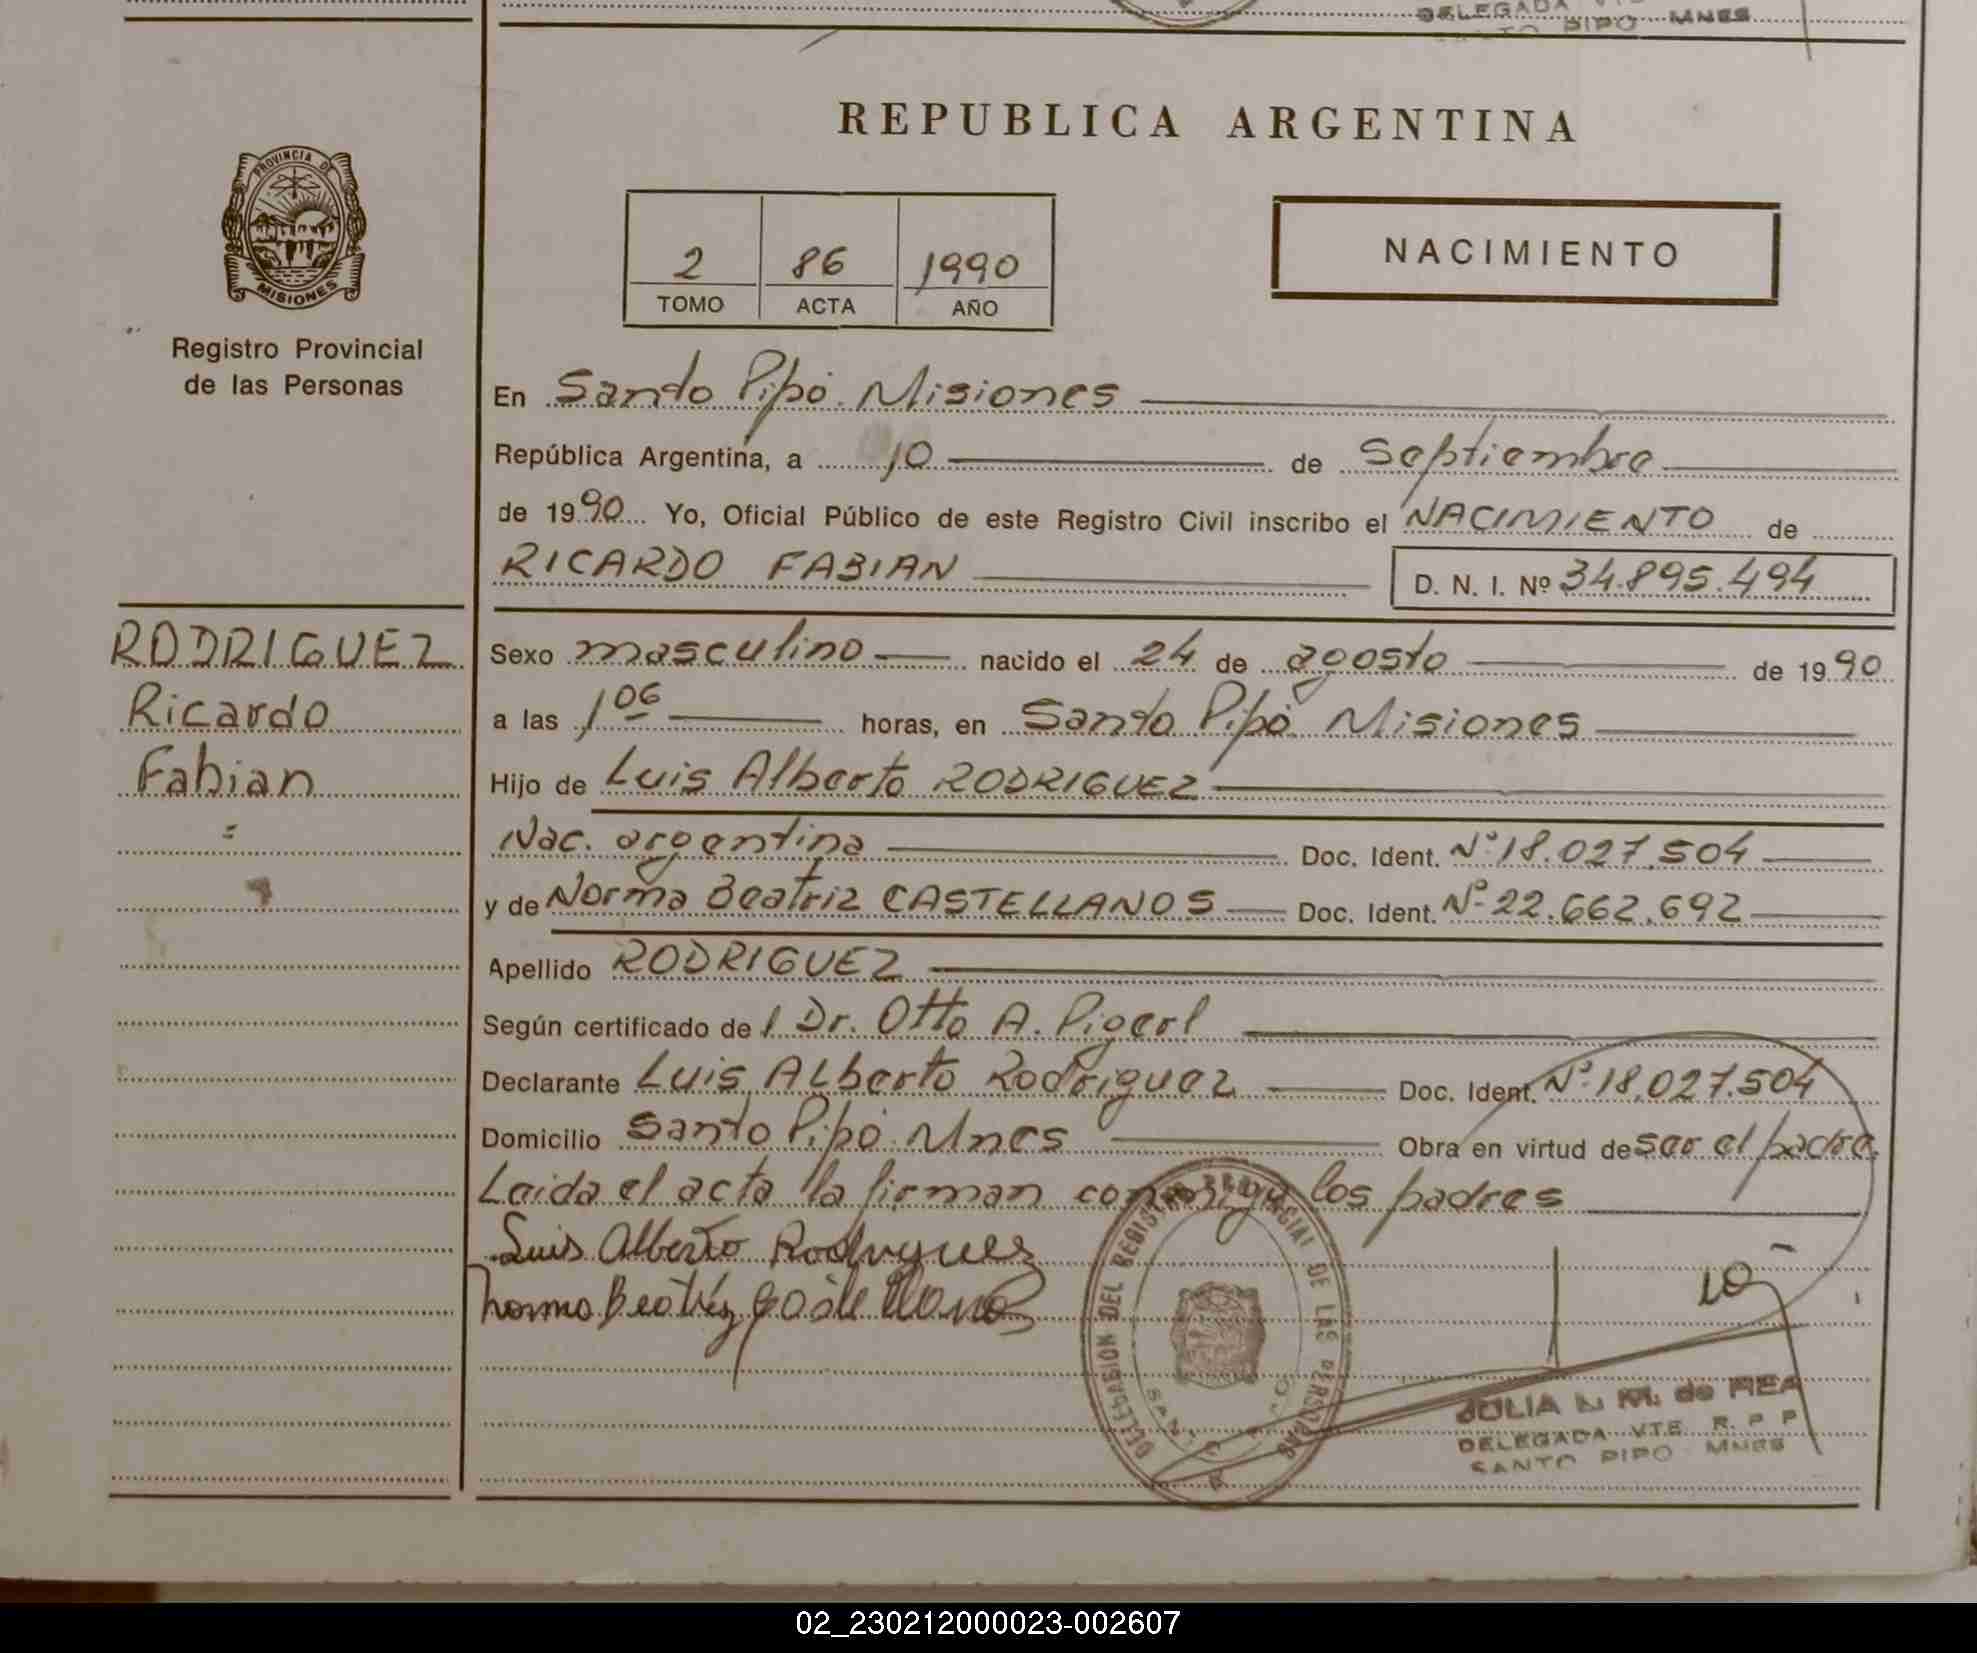 DELEGADA VTE
SANTO PIPO MNES
PROVINCIA DE
MISIONES
Registro Provincial
de las Personas
REPUBLICA ARGENTINA
2 86 1990
TOMO ACTA AÑO
NACIMIENTO
En Santo Pipó Misiones
República Argentina, a 10 de Septiembre
de 1990 Yo, Oficial Público de este Registro Civil inscribo el NACIMIENTO de
RICARDO FABIAN D. N. I. Nº 34.895.494
RODRIGUEZ
Ricardo
Fabian
=
Sexo masculino nacido el 24 de agosto de 1990
a las 1 06 horas, en Santo Pipó Misiones
Hijo de Luis Alberto RODRIGUEZ
Nac. argentina Doc. Ident. Nº 18.027.504
y de Norma Beatriz CASTELLANOS Doc. Ident. Nº 22.662.692
Apellido RODRIGUEZ
Según certificado del Dr. Otto A.
Declarante Luis Alberto Rodriguez Doc. Ident. Nº 18.027.504
Domicilio Santo Pipó Mnes Obra en virtud de ser el padre
Leida el acta la firman conmigo los padres
Luis Alberto Rodriguez
Norma Beatriz Castellanos
DELEGASION DEL REGISTRO PROVINCIAL DE LAS PERSONAS
JULIA L. M. de REA
DELEGADA VTE R. P P
SANTO PIPO MNES
02_230212000023-002607